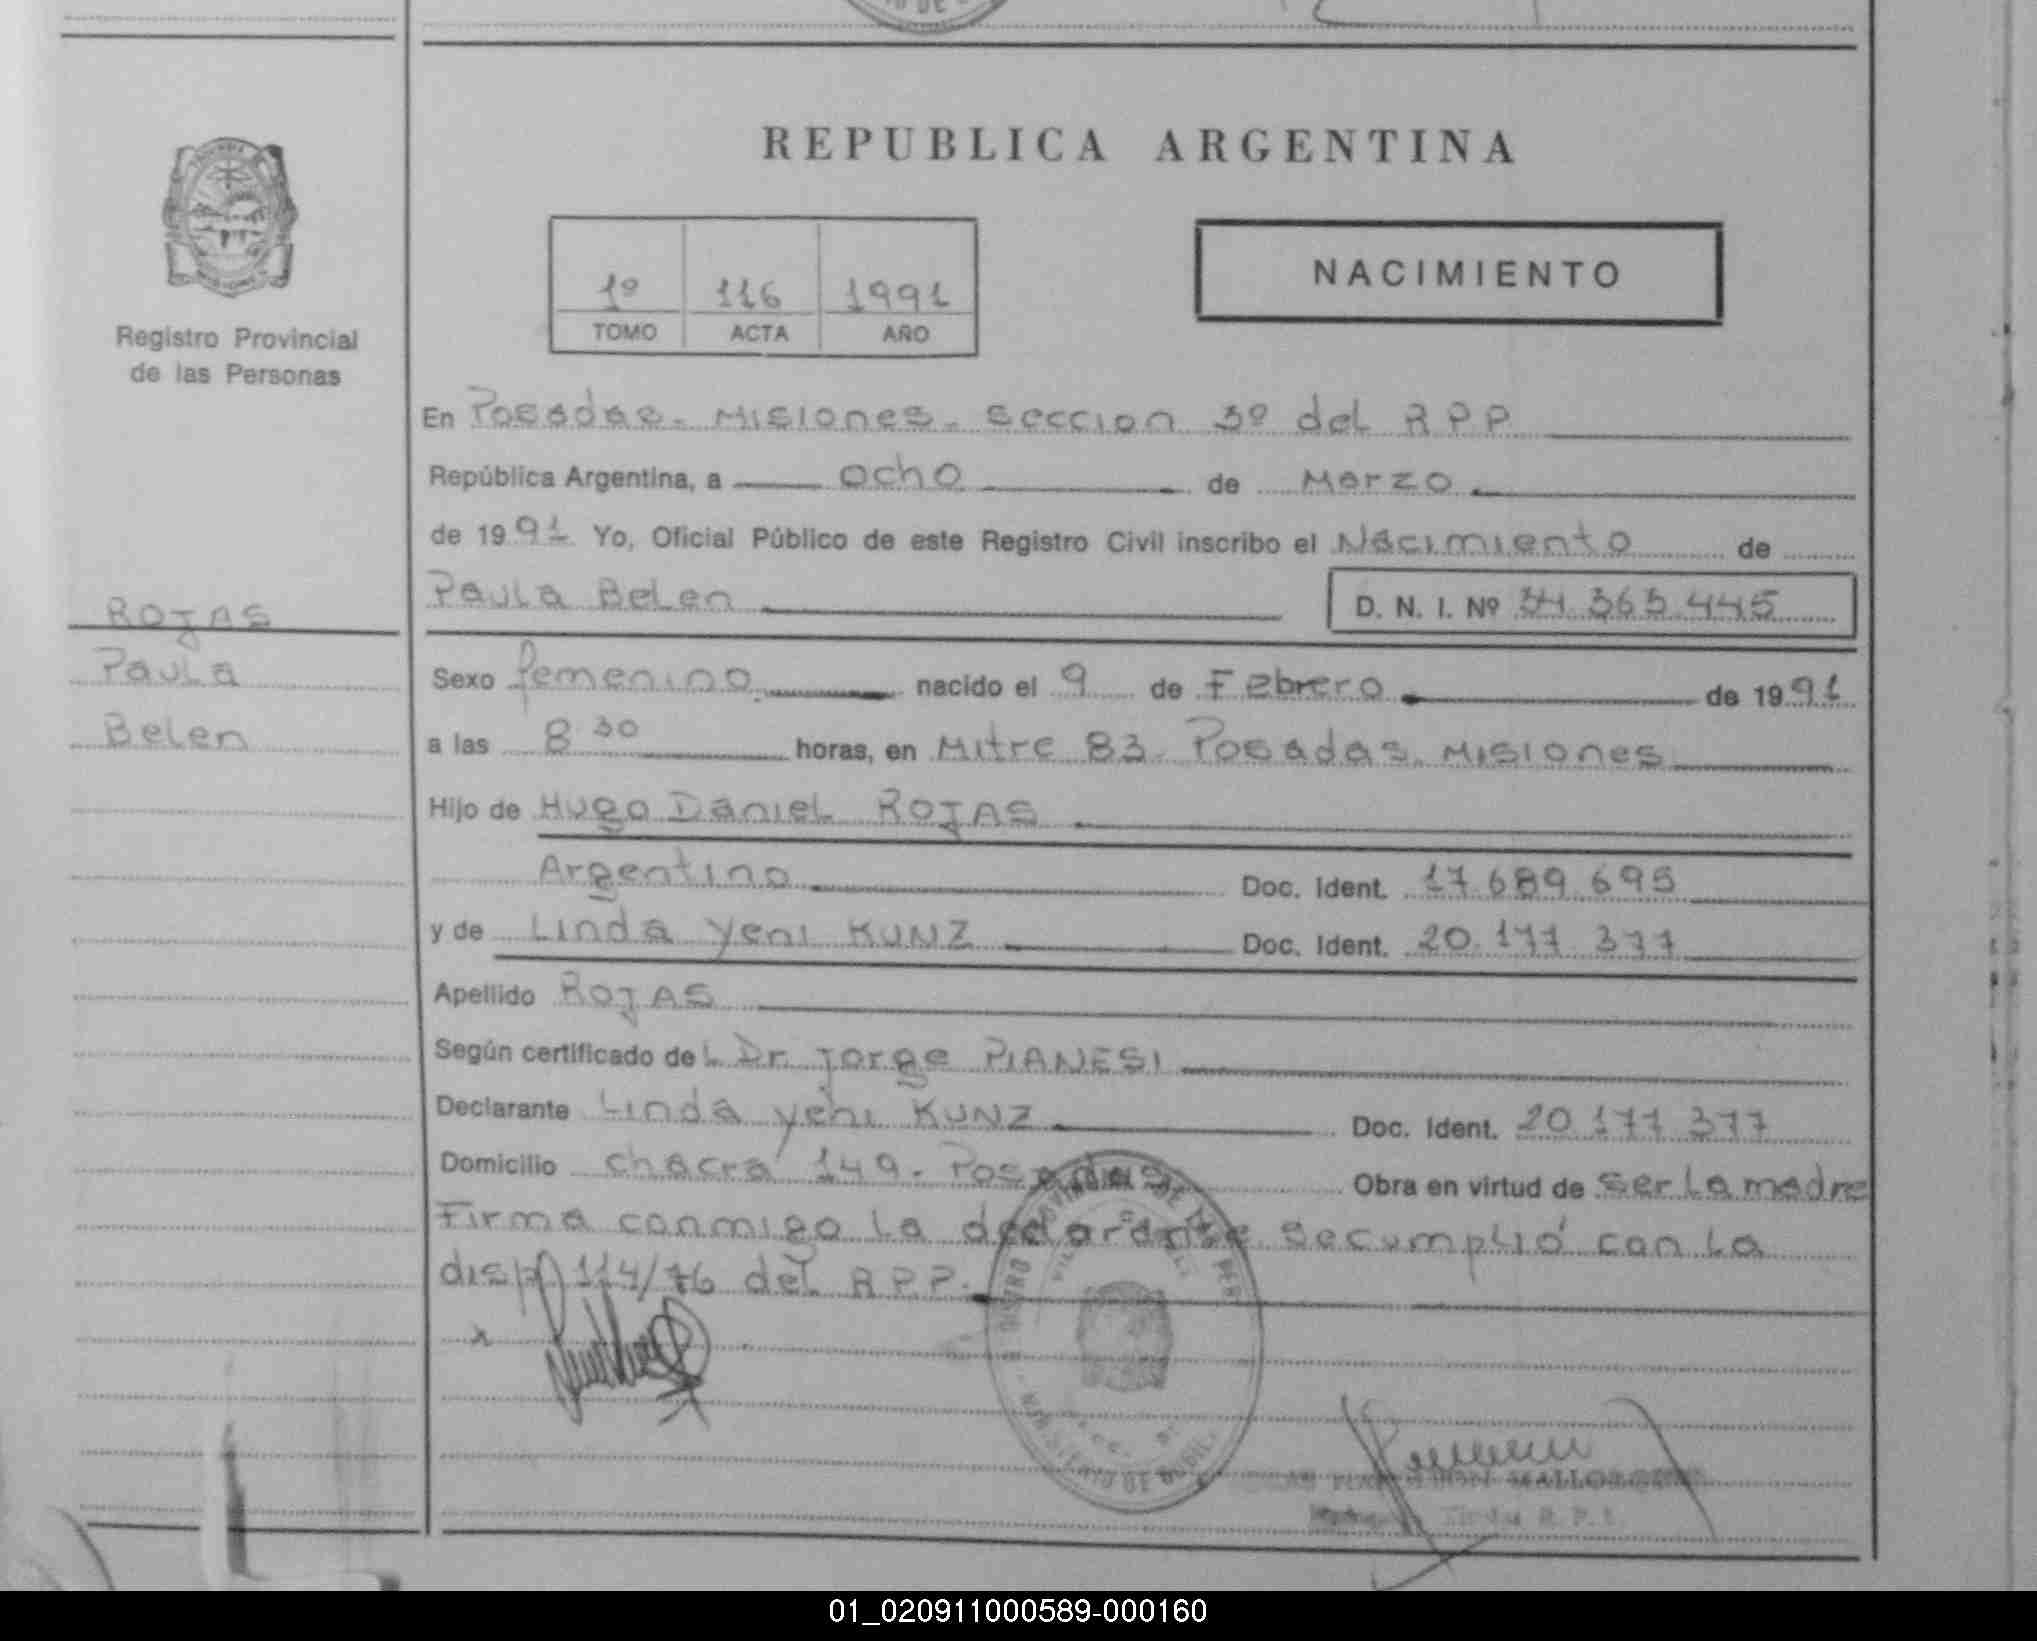 REPUBLICA ARGENTINA
Registro Provincial
de las Personas
1º 116 1991
TOMO ACTA AÑO
NACIMIENTO
En Posadas - Misiones - Seccion 3º del R P P
República Argentina, a ocho de Marzo
de 1991 Yo, Oficial Público de este Registro Civil inscribo el Nacimiento de
Paula Belen D. N. I. Nº 34.363.445
ROJAS
Paula
Belen
Sexo femenino nacido el 9 de Febrero de 1991
a las 8 30 horas, en Mitre 83. Posadas. Misiones
Hijo de Hugo Daniel ROJAS
Argentino Doc. Ident. 17.689.695
y de Linda Yeni KUNZ Doc. Ident. 20.177.377
Apellido ROJAS
Según certificado del Dr. Jorge PIANESI
Declarante Linda Yeni KUNZ Doc. Ident. 20.177.377
Domicilio chacra 149 - Posadas Obra en virtud de ser la madre
Firma conmigo la declarante se cumplió con la
disp 114/76 del R.P.P.
01_020911000589-000160